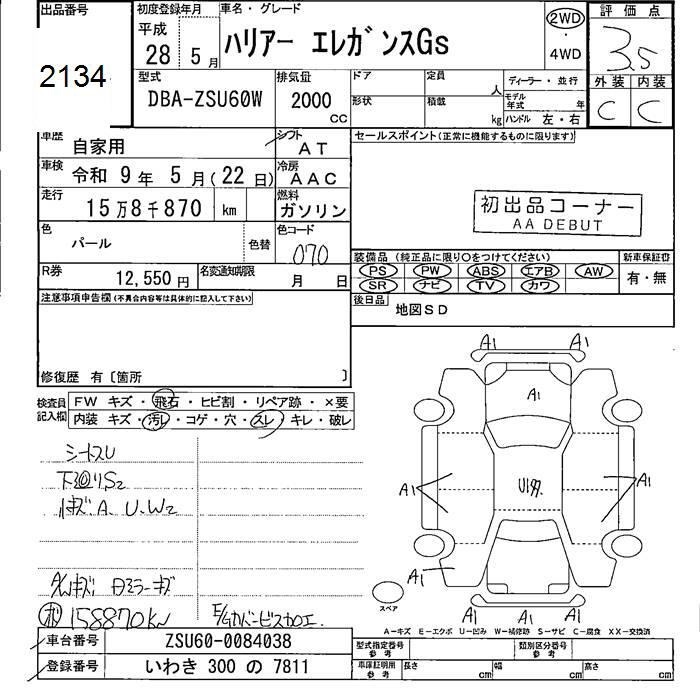 出品番号
2134
初度登録年月
平成
28 5月
車名・グレード
ハリアー エレガンスGs
2WD
・
4WD
評価点
3.5
外装 内装
C C
型式
DBA-ZSU60W
排気量
2000
CC
ドア 定員 人
形状 積載 kg
ディーラー・並行
モデル年式 年
ハンドル 左・右
車歴
自家用
シフト
AT
車検
令和 9年 5月(22日)
冷房
AAC
走行
15万8千870 km
燃料
ガソリン
色
パール
色替
色コード
070
R券
12,550円
名変通知期限
月 日
セールスポイント(正常に機能するものに限ります)
初出品コーナー
AA DEBUT
装備品(純正品に限り○をつけてください)
PS PW ABS エアB AW
SR ナビ TV カワ
新車保証書
有・無
後日品
地図SD
注意事項申告欄(不具合内容等は具体的に記入して下さい)
修復歴 有〔箇所 〕
検査員記入欄
FW キズ・飛石・ヒビ割・リペア跡・×要
内装 キズ・汚レ・コゲ・穴・スレ・キレ・破レ
シートスU
下廻りS2
A1 A1
A1
A1 A1
A1
A1 A1
スペア
158870km
A-キズ E-エクボ U-凹み W-補修跡 S-サビ C-腐食 XX-交換済
車台番号
ZSU60-0084038
登録番号
いわき 300 の 7811
型式指定番号
参考
類別区分番号
参考
車庫証明用
参考
長さ cm 幅 cm 高さ cm